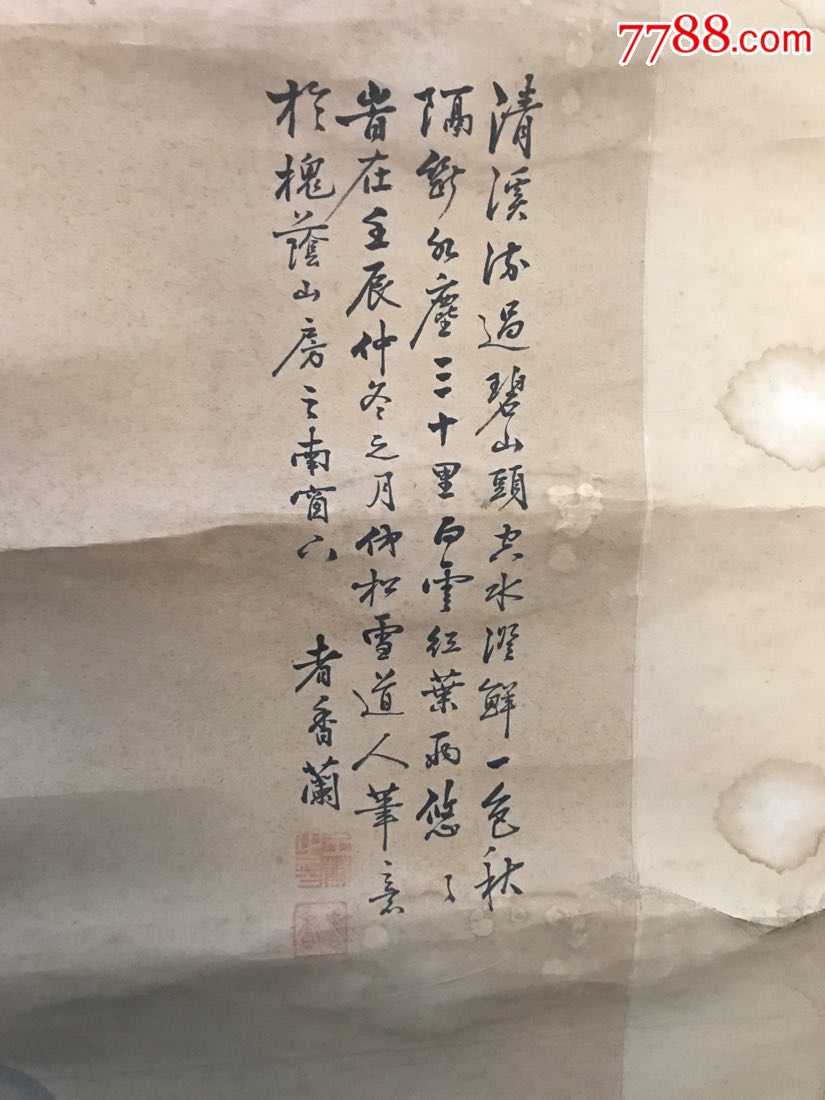 7788.com
清溪流過碧山頭空水澄鮮一色秋
隔斷紅塵三十里白雲紅葉兩悠々
峕在壬辰仲冬之月仿松雪道人筆意
於槐蔭山房之南窗下
者香蘭